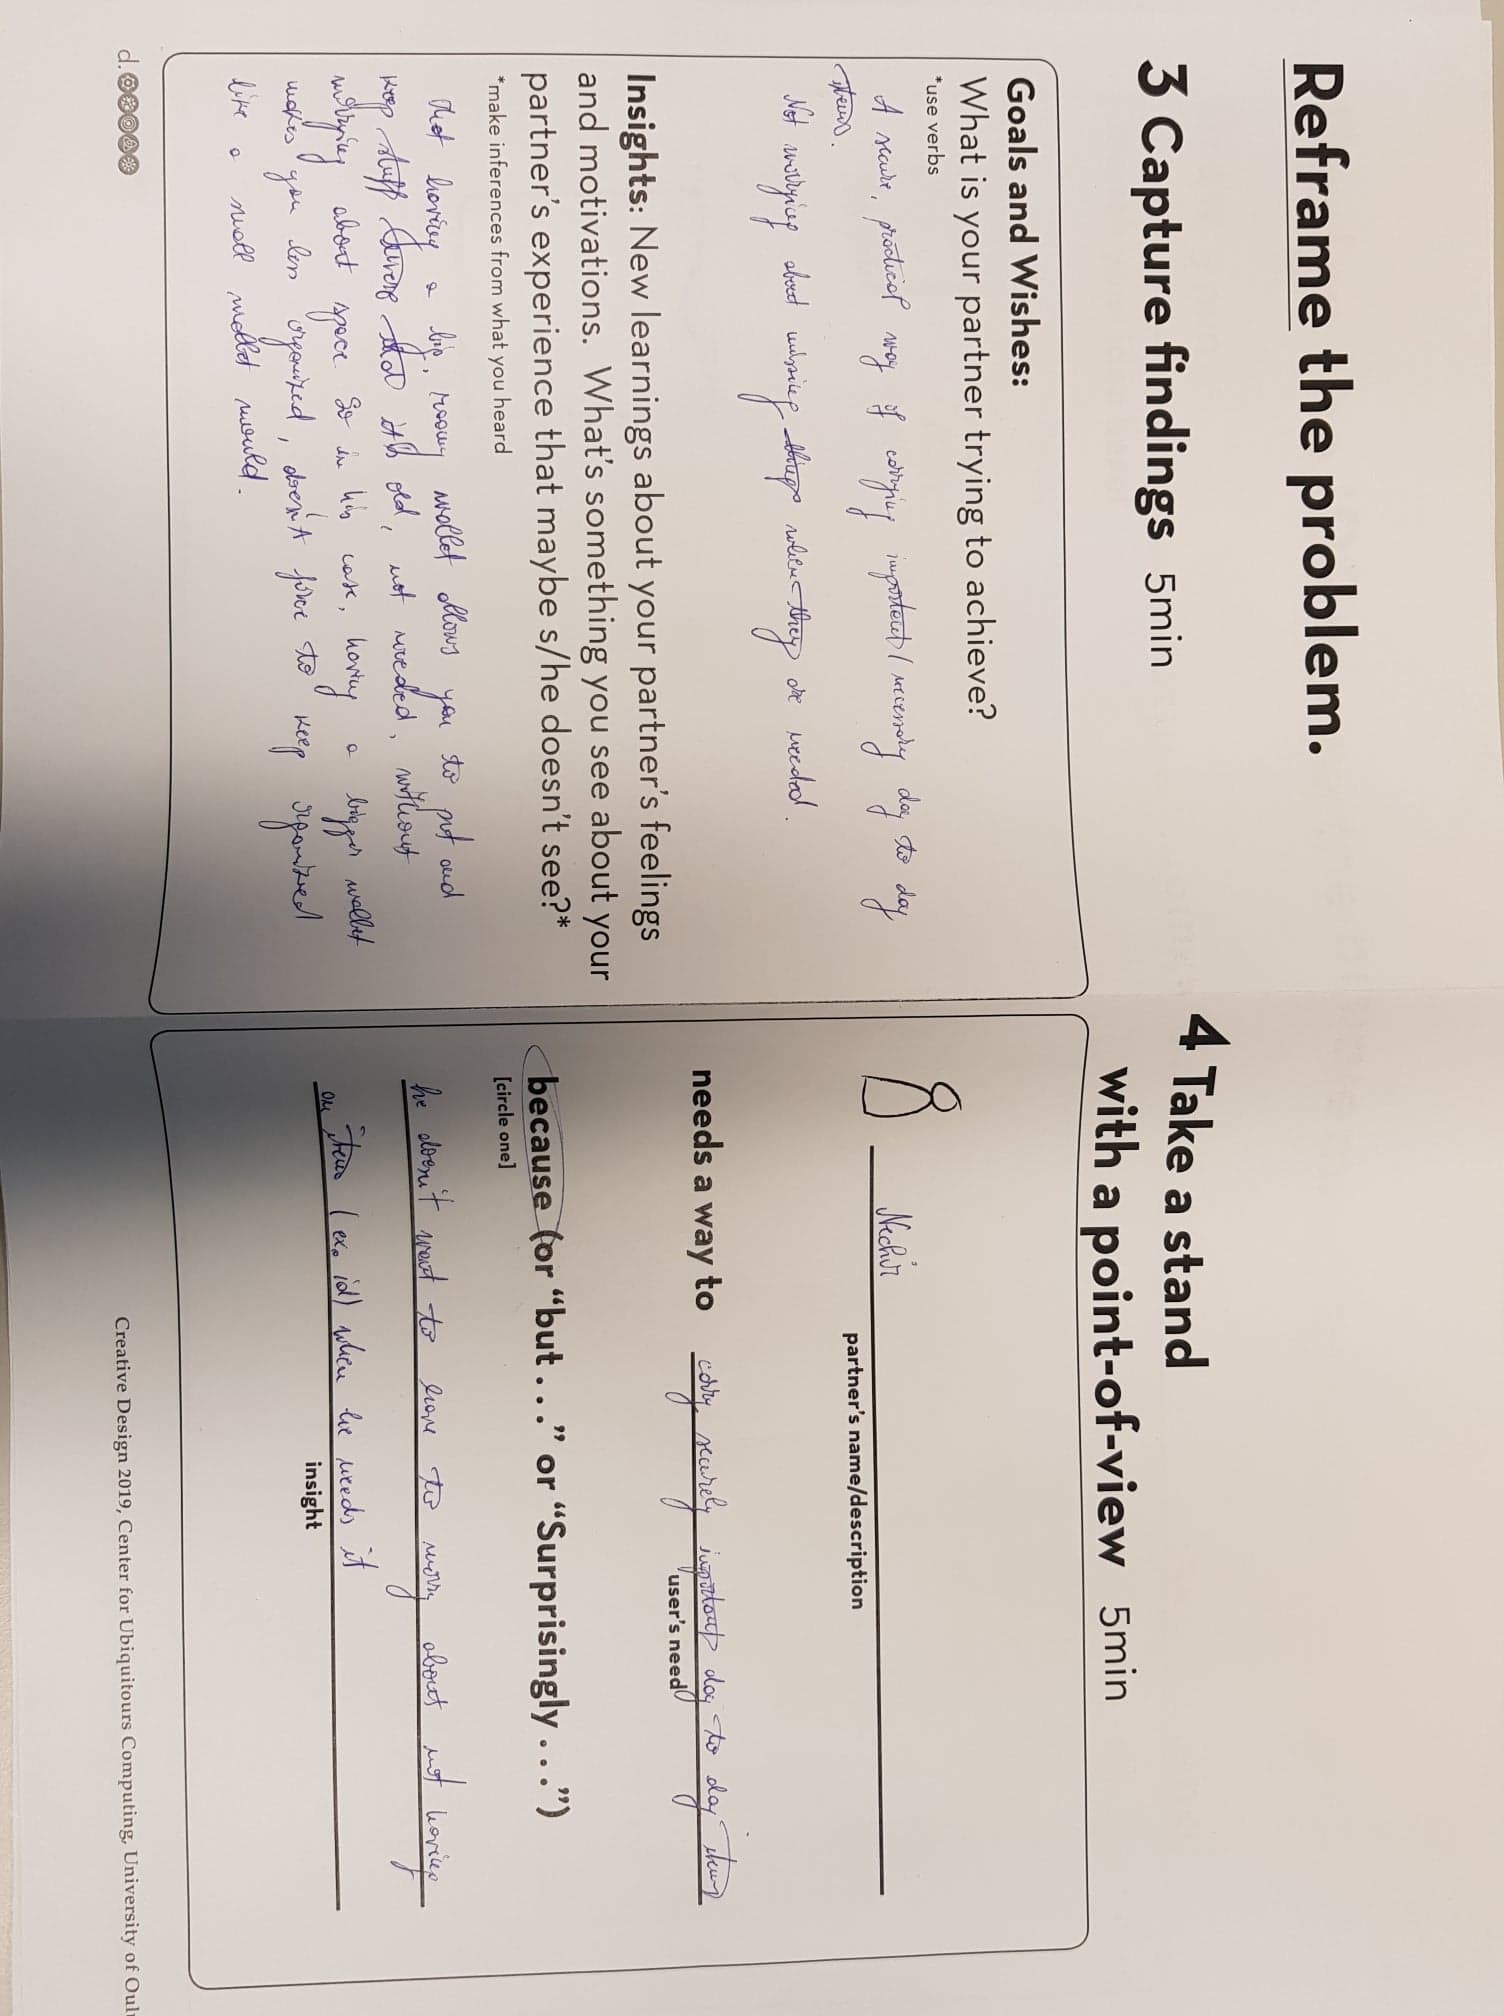 Reframe the problem.
3 Capture findings 5min
Goals and Wishes:
What is your partner trying to achieve?
*use verbs
A secure, practical way of carrying important / necessary day to day
items.
Not worrying about missing things when they are needed.
Insights: New learnings about your partner's feelings
and motivations. What's something you see about your
partner's experience that maybe s/he doesn't see?*
*make inferences from what you heard
That having a big, roomy wallet allows you to put and
keep stuff that it's old, not needed, without
worrying about space. So in his case, having a bigger wallet
makes you less organized, doesn't force to keep organized
like a small wallet would.
d.
4 Take a stand
with a point-of-view 5min
Nechir
partner's name/description
needs a way to carry securely important day to day items
user's need
because (or “but . . .” or “Surprisingly . . .”)
[circle one]
he doesn't want to have to worry about not having
an item (ex. id) when he needs it
insight
Creative Design 2019, Center for Ubiquitours Computing, University of Oul